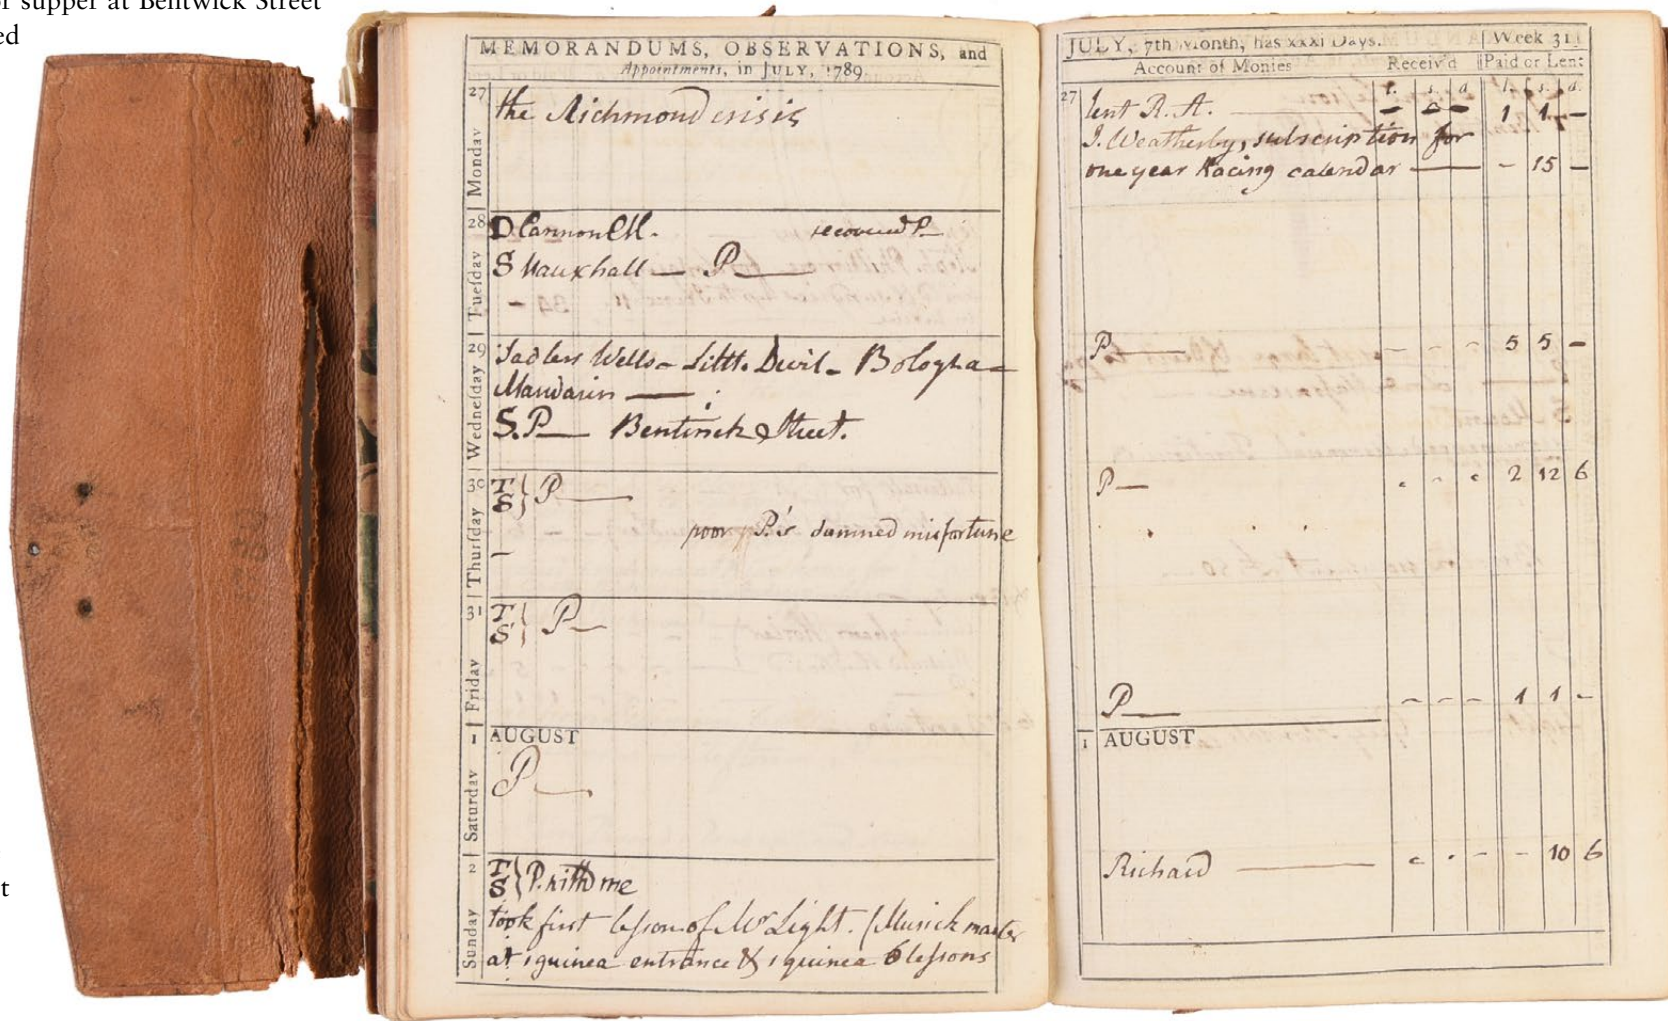 r supper at Bentwick Street
ed
t
MEMORANDUMS, OBSERVATIONS, and
Appointments, in JULY, 1789
27 Monday
the Richmond crisis
28 Tuesday
D Cannon
recovered P—
S Vauxhall — P—
29 Wednesday
Sadlers Wells – Little Devil – Bologna –
Mandarin —
S. P— Bentinck Street.
30 Thursday
T
S } P—
poor P.'s damned misfortune
–
31 Friday
T
S } P—
1 AUGUST
Saturday
P—
2 Sunday
T
S } P. with me
took first lesson of Mr Light. (Musick master
at 1 guinea entrance & 1 guinea 6 lessons
JULY, 7th Month, has xxxi Days. Week 31
Account of Monies Receiv'd Paid or Lent
l. s. d. l. s. d.
27 lent R. A. — – – – 1 1 –
J. Weatherby, subscription for
one year Racing calendar — – 15 –
P— – – – 5 5 –
P— - - - 2 12 6
P— – – – 1 1 –
1 AUGUST
Richard — - - - – 10 6